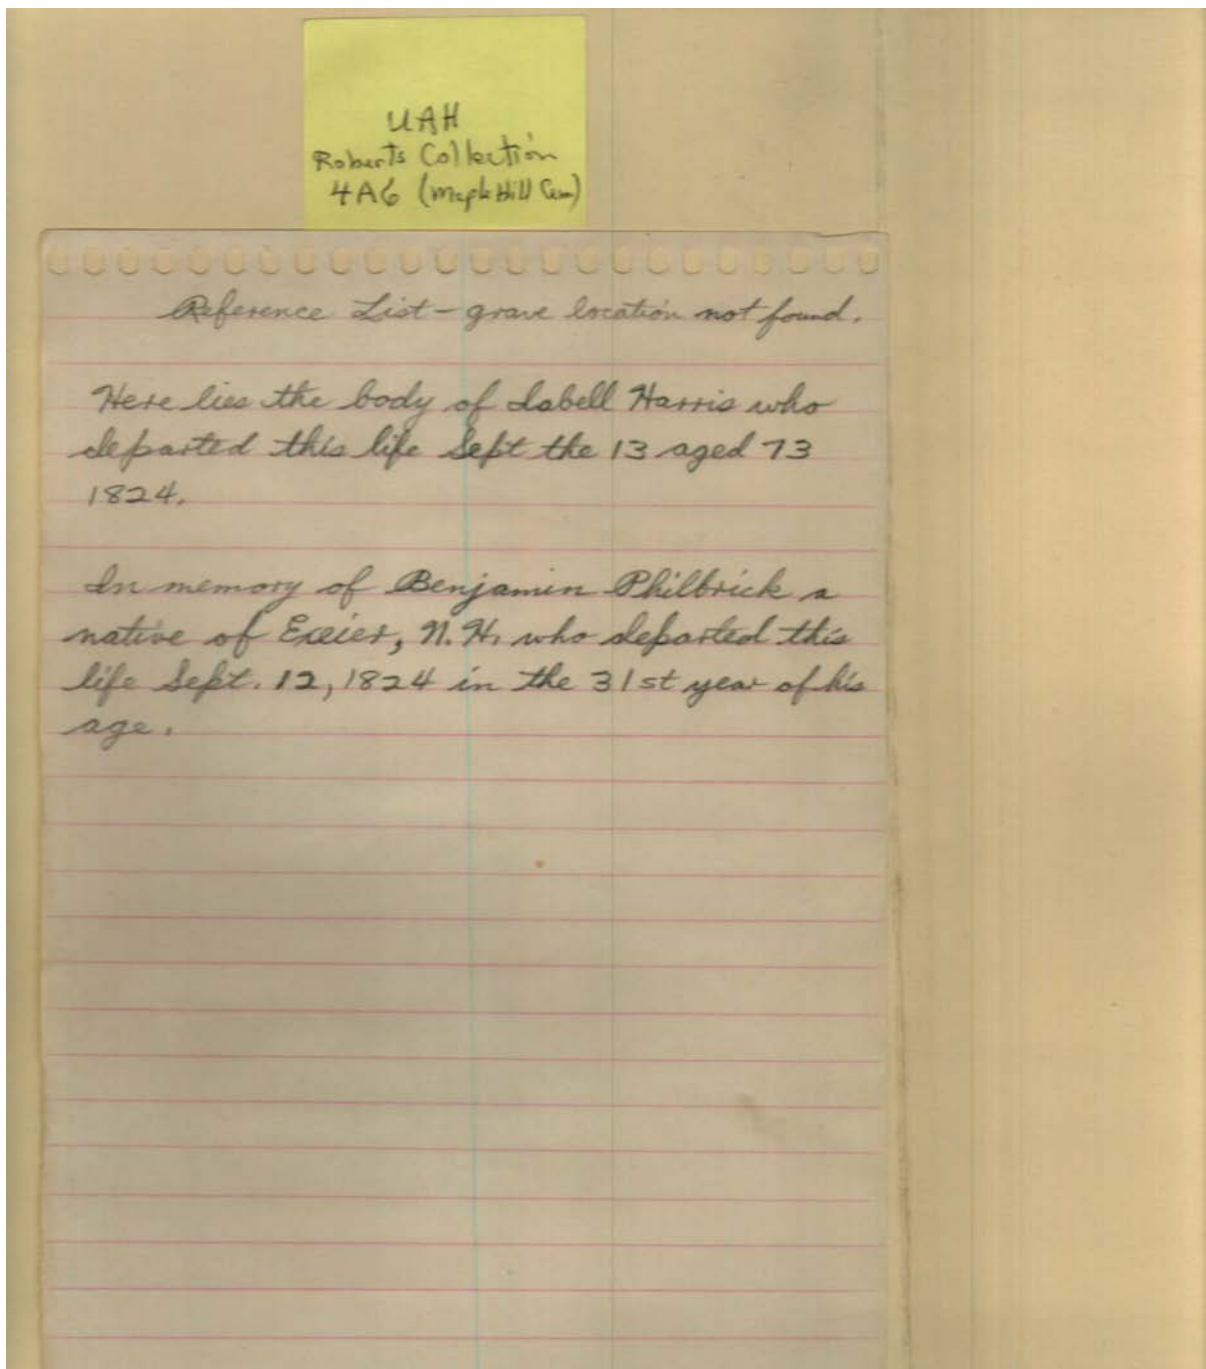 UAH
Roberts Collection
4A6 (Maple Hill Cem)
Reference List – grave location not found.
Here lies the body of Isabell Harris who
departed this life Sept the 13 aged 73
1824.
In memory of Benjamin Philbrick a
native of Exeier, N.H. who departed this
life Sept. 12, 1824 in the 31st year of his
age.